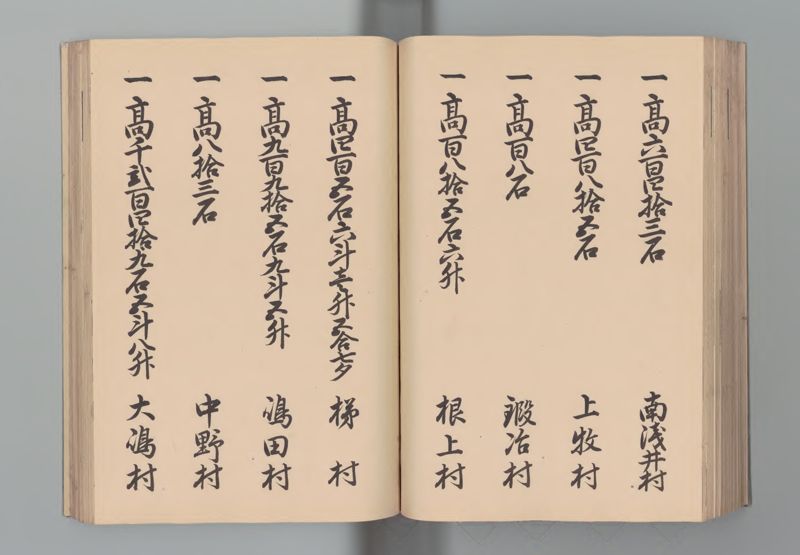 一 高六百四拾三石 南浅井村
一 高四百八拾五石 上牧村
一 高百八石 鍛冶村
一 高百八拾五石六升 根上村
一 高四百五石六斗壱升五合七夕 梯村
一 高九百九拾五石九斗五升 嶋田村
一 高八拾三石 中野村
一 高千弐百四拾九石五斗八升 大嶋村